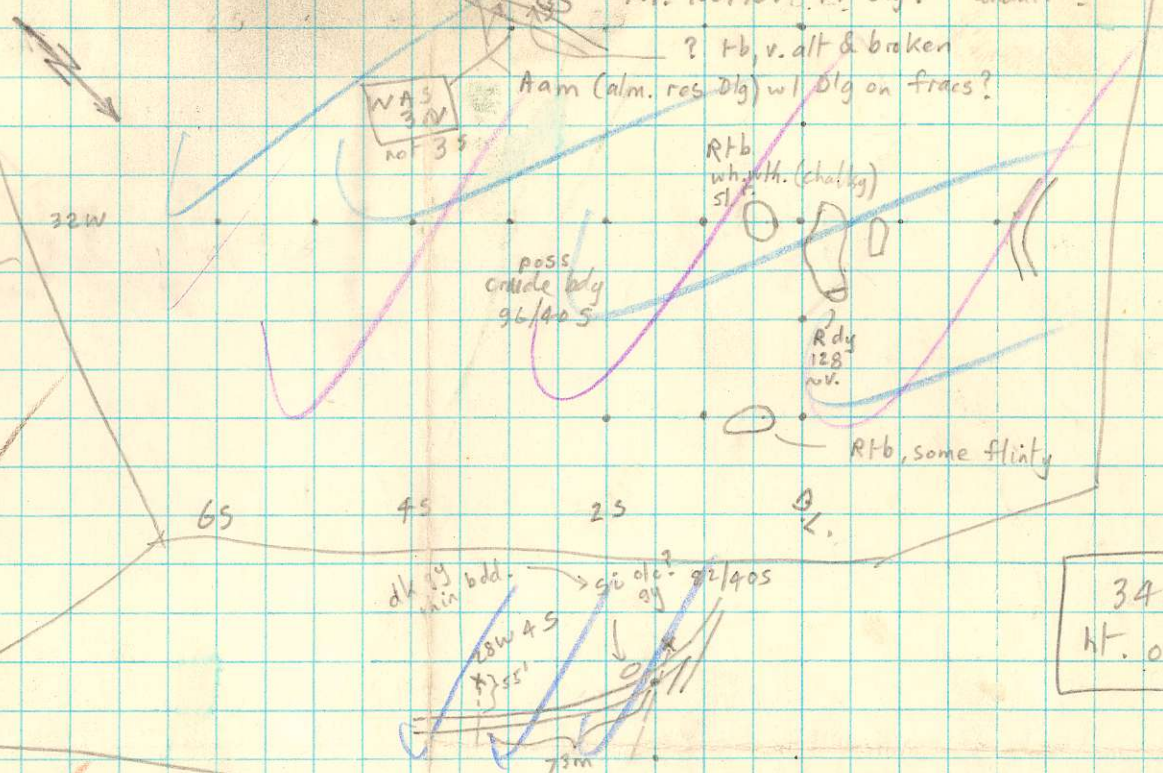 ? rb, v. alt & broken
Aam (alm. res Dlg) w/ Dlg on fracs?
NAS
3N
not 3S
Rtb
wh. wth. (chalky)
32W
poss
crude bdy
96/40S
Rdy
128
~v.
Rtb, some flinty
6S
4S
2S
B.L.
dk gy
thin bdd.
o/c?
gy
82/40S
28W 4S
55'
73m
34
ht. o